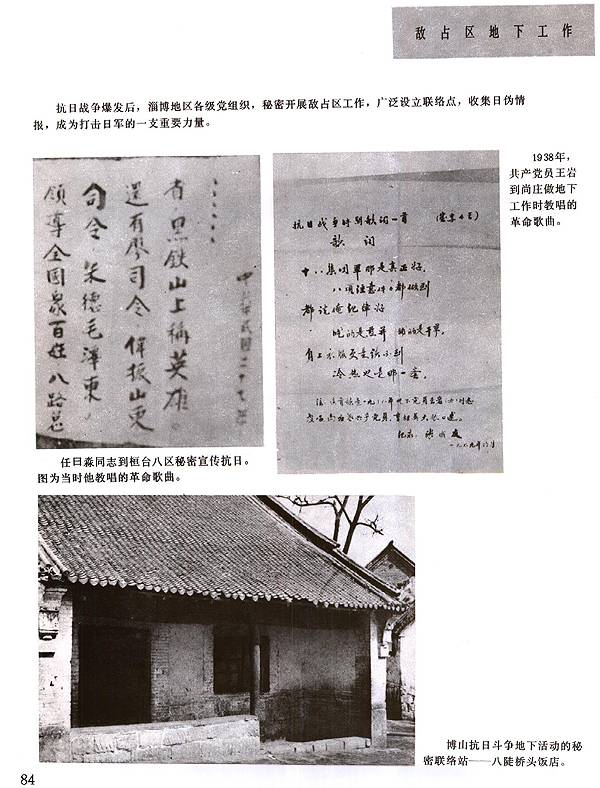 敌占区地下工作
抗日战争爆发后，淄博地区各级党组织，秘密开展敌占区工作，广泛设立联络点，收集日伪情
报，成为打击日军的一支重要力量。
1938年，
共产党员王岩
到尚庄做地下
工作时教唱的
革命歌曲。
者黑铁山上称英雄
还有廖司令、傑振山更
司令、朱德毛泽东
领导全国众百姓八路总
中华民国二十七年
抗日战争时期歌词一首
歌词
十八集团军那是真正好，
八项注意件件都做到
都说他纪律好
吃的是煎并
冷热只是那一套。
任曰淼同志到桓台八区秘密宣传抗日。
图为当时他教唱的革命歌曲。
博山抗日斗争地下活动的秘
密联络站——八陡桥头饭店。
84